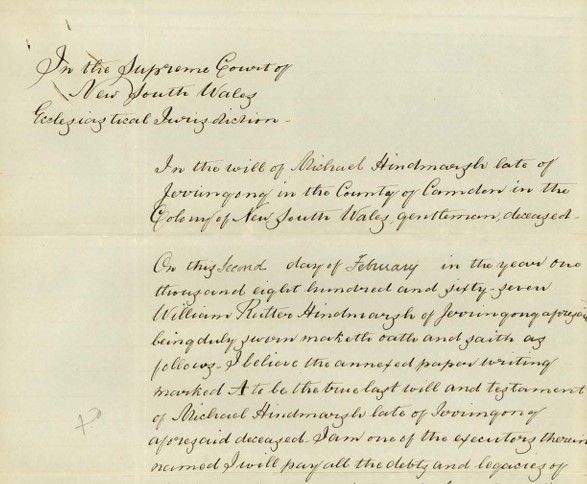 In the Supreme Court of
New South Wales
Ecclesiastical Jurisdiction -
In the will of Michael Hindmarsh late of
Jerringong in the County of Camden in the
Colony of New South Wales gentleman, deceased -
On this Second day of February in the year one
thousand eight hundred and sixty-seven
William Rutter Hindmarsh of Jerringong aforesaid
being duly sworn maketh oath and saith as
follows - I believe the annexed paper writing
marked A to be the true last will and testament
of Michael Hindmarsh late of Jerringong
aforesaid deceased. I am one of the executors therein
named I will pay all the debts and legacies of